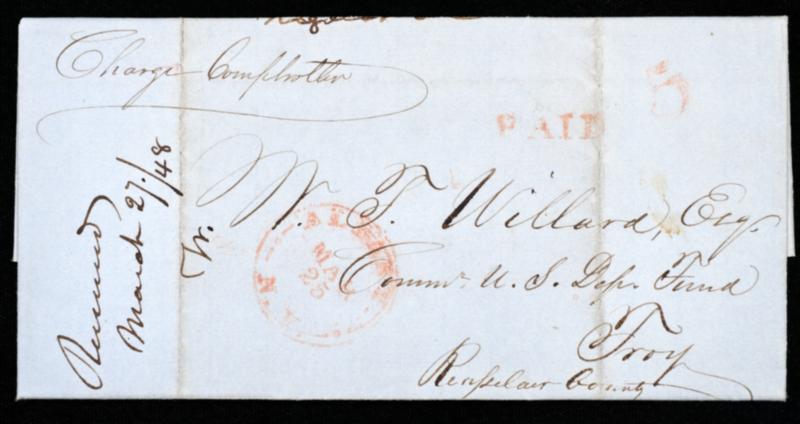 Charge Comptroller
PAID
5
W. F. Willard, Esq.
Commr. U. S. Dep. Fund
Troy
Rensselaer County
March 27/48
ALBANY
MAR
25
N.Y.